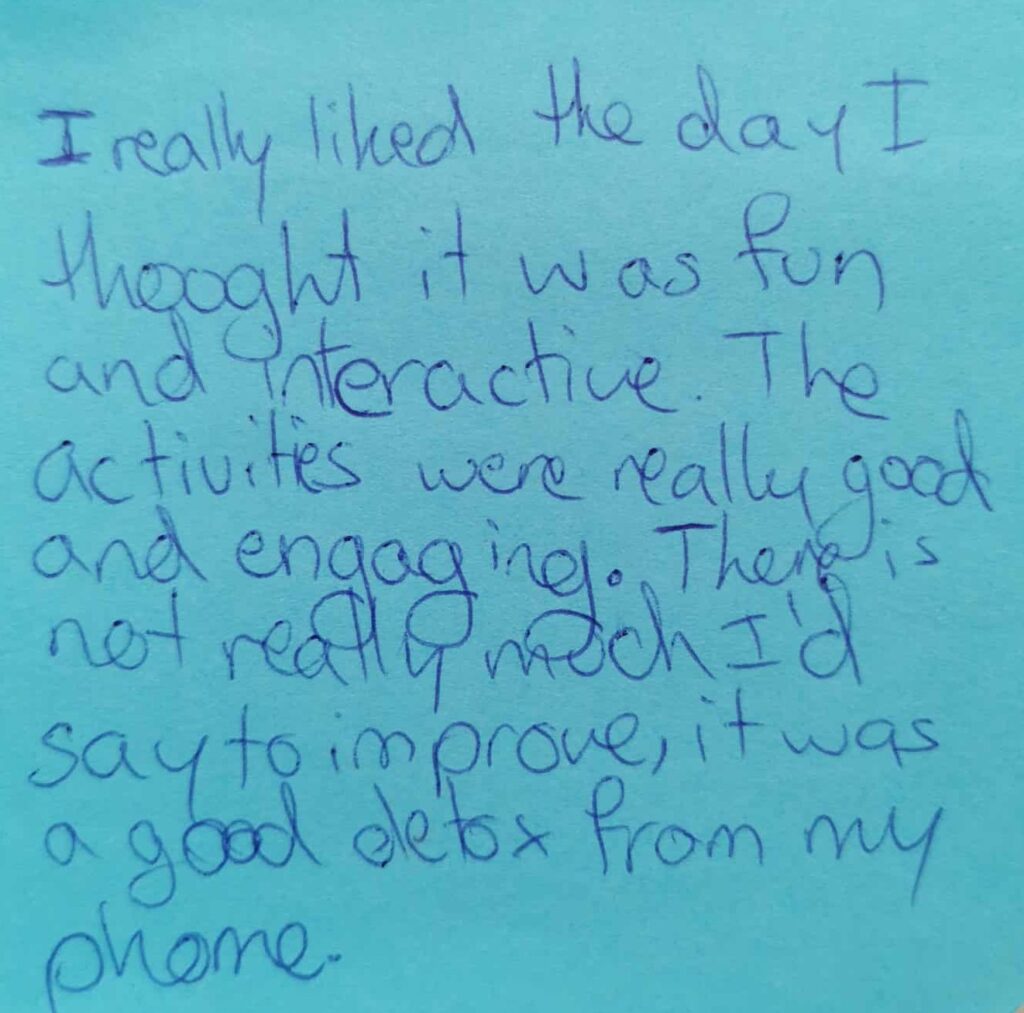 I really liked the day I
thought it was fun
and interactive. The
activities were really good
and engaging. There is
not really much I'd
say to improve, it was
a good detox from my
phone.